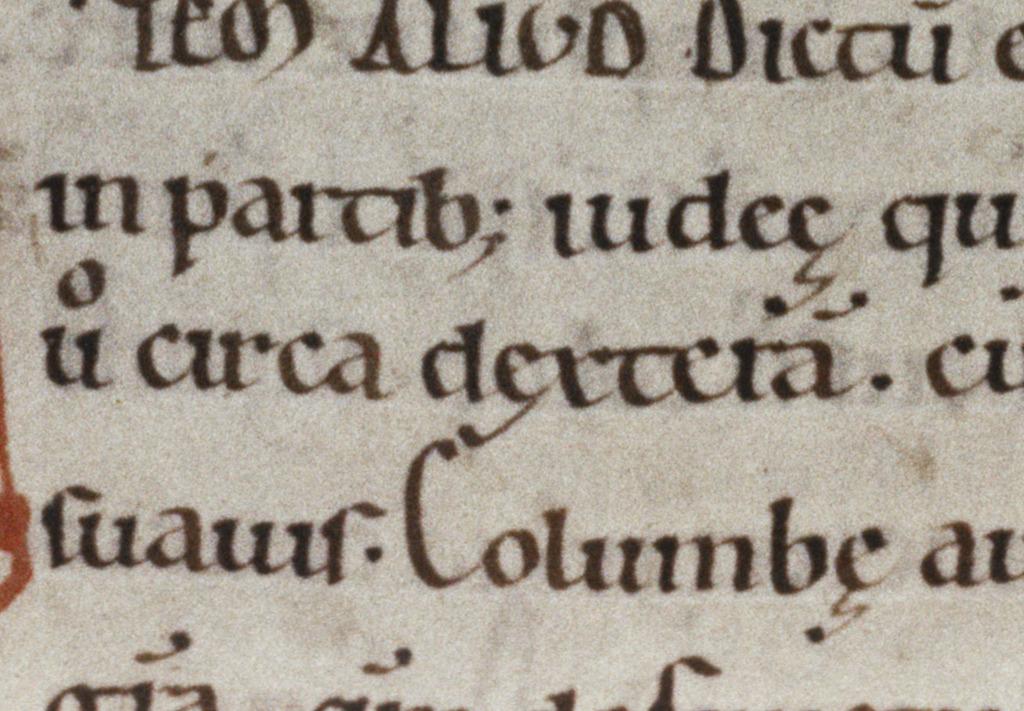 ITEM ALIUD Dictū e
in partib; iudeę qu
uͦ circa dexterā. cu
suauis. Columbę au